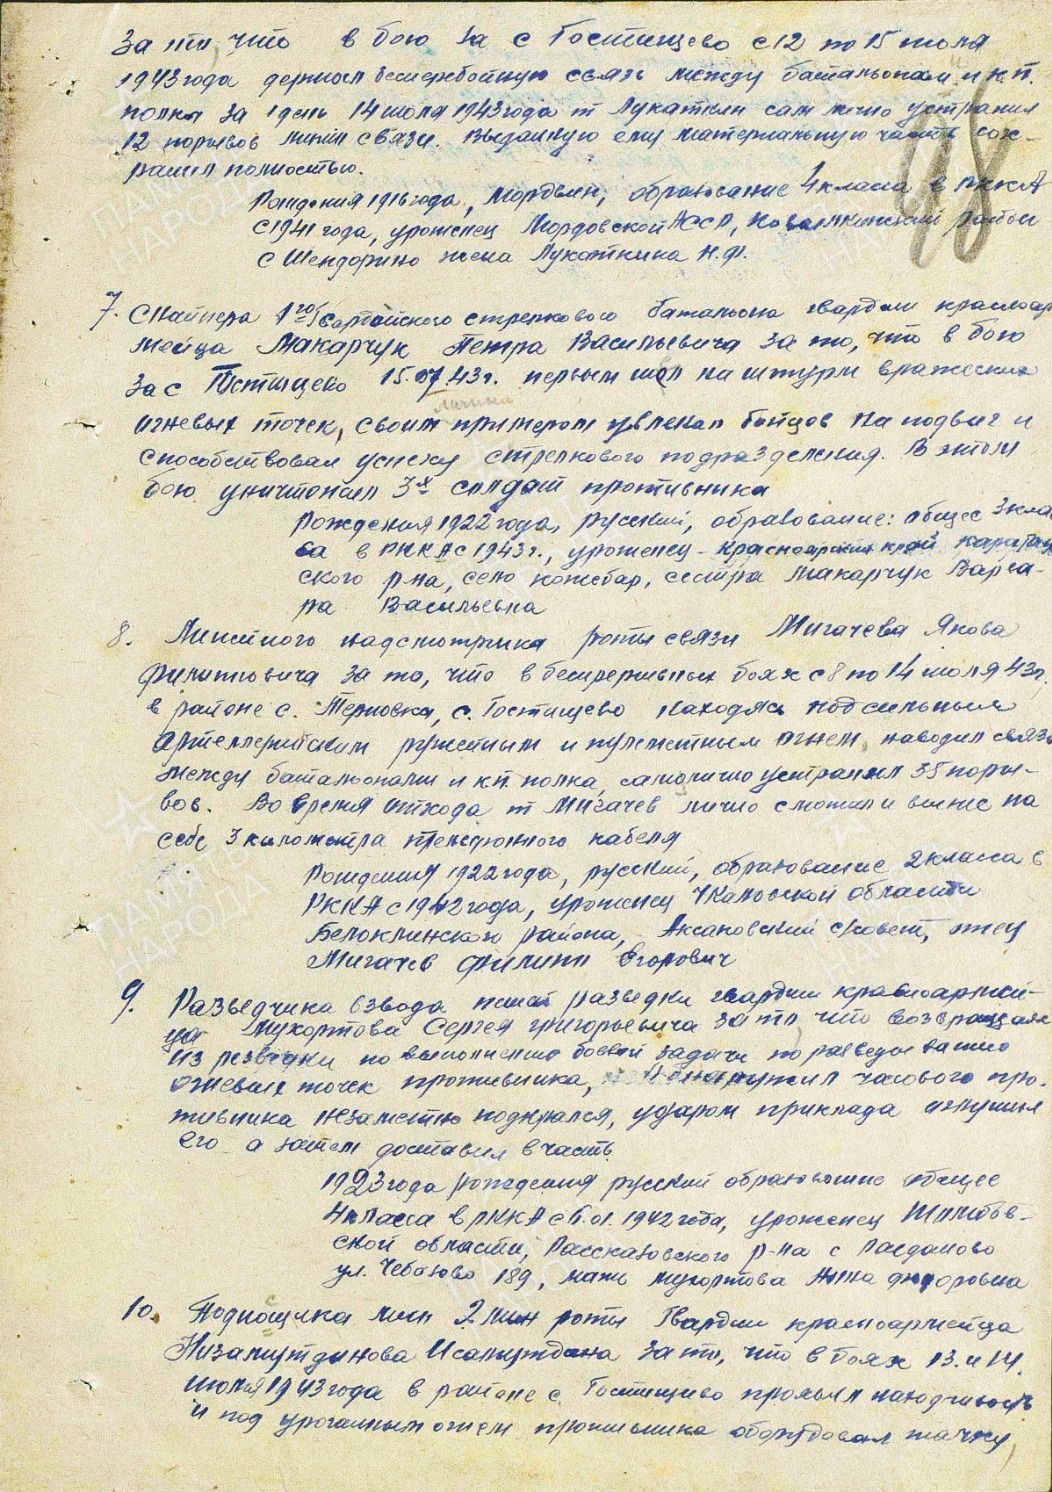 За то, что в бою за с Гостищево с 12 по 15 июля
1943 года держал бесперебойную связь между батальонам и к.п.
полка за 1 день 14 июля 1943 года т Лукаткин сам лично устранил
12 порывов линии связи. Вверенную ему материальную часть сох-
ранил полностью.
98
Рождения 1916 года, мордвин, образование 4 класса в РККА
с 1941 года, уроженец Мордовской АССР, район
с Шендорино жена Лукаткина Н.Ф.
7. Снайпера 1го Гвардейского стрелкового батальона гвардии красноар
мейца Макарчук Петра Васильевича за то, что в бою
за с Гостищево 15.07.43 г. первым шел на штурм вражеских
огневых точек, своим примером увлекал бойцов на подвиг и
способствовал успеху стрелкового подразделения. В этом
бою уничтожил 3х солдат противника
Рождения 1922 года, русский, образование: общее 3 кла
са в РККА с 1943 г., уроженец - Красноярский край Каратуз
ского р-на, село Кожебар, сестра Макарчук Варва-
ра Васильевна
8. Линейного надсмотрщика роты связи Мигачева Якова
Филипповича за то, что в беспрерывных боях с 8 по 14 июля 43 г.
в районе с. Терновка, с. Гостищево находясь под сильным
артеллерийским ружейным и пулеметным огнем, наводил связь
между батальонами и кп полка, самолично устранил 35 поры-
вов. Во время отхода т Мигачев лично смотал и вынес на
себе 3 километра телефонного кабеля
Рождения 1922 года, русский, образование 2 класса в
РККА с 1942 года, уроженец Чкаловской области
района, Аксаковский с/совет, отец
Мигачев Филипп Егорович
9. Разведчика взвода пешей разведки гвардии красноармей-
ца Мухортова Сергея Григорьевича за то что возвращаяс
из разведки по выполнению боевой задачи по разведованию
огневых точек противника, обнаружил часового про-
тивника незаметно подкрался, ударом приклада оглушил
его а затем доставил в часть
1923 года рождения русский образование общее
4 класса в РККА с 6.01.1942 года, уроженец Тамбов-
ской области, Рассказовского р-на с
ул. 189, мать Мухортова Анна Федоровна
10. Подносщика мин 2 мин роты Гвардии красноармейца
Низамутдинова за то, что в боях 13. и 14
июля 1943 года в районе с Гостищево проявил находчивость
и под ураганным огнем противника оборудовал